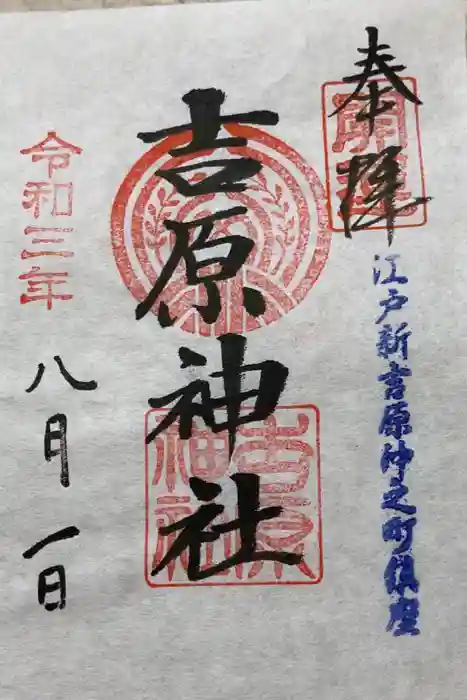 奉拝
江戸新吉原仲之町鎮座
吉原神社
吉原神社
令和三年
八月一日